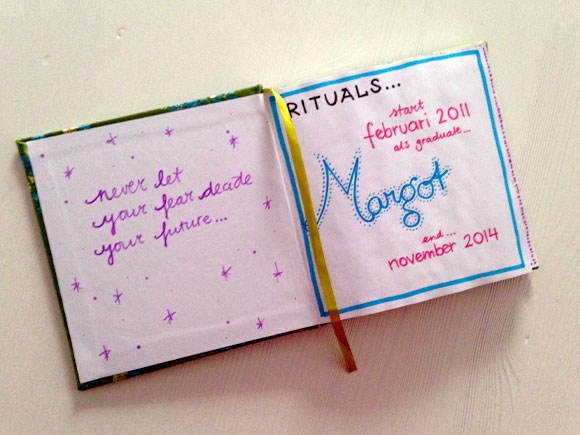 never let
your fear decide
your future...
RITUALS...
start
februari 2011
als graduate...
Margot
end...
november 2014